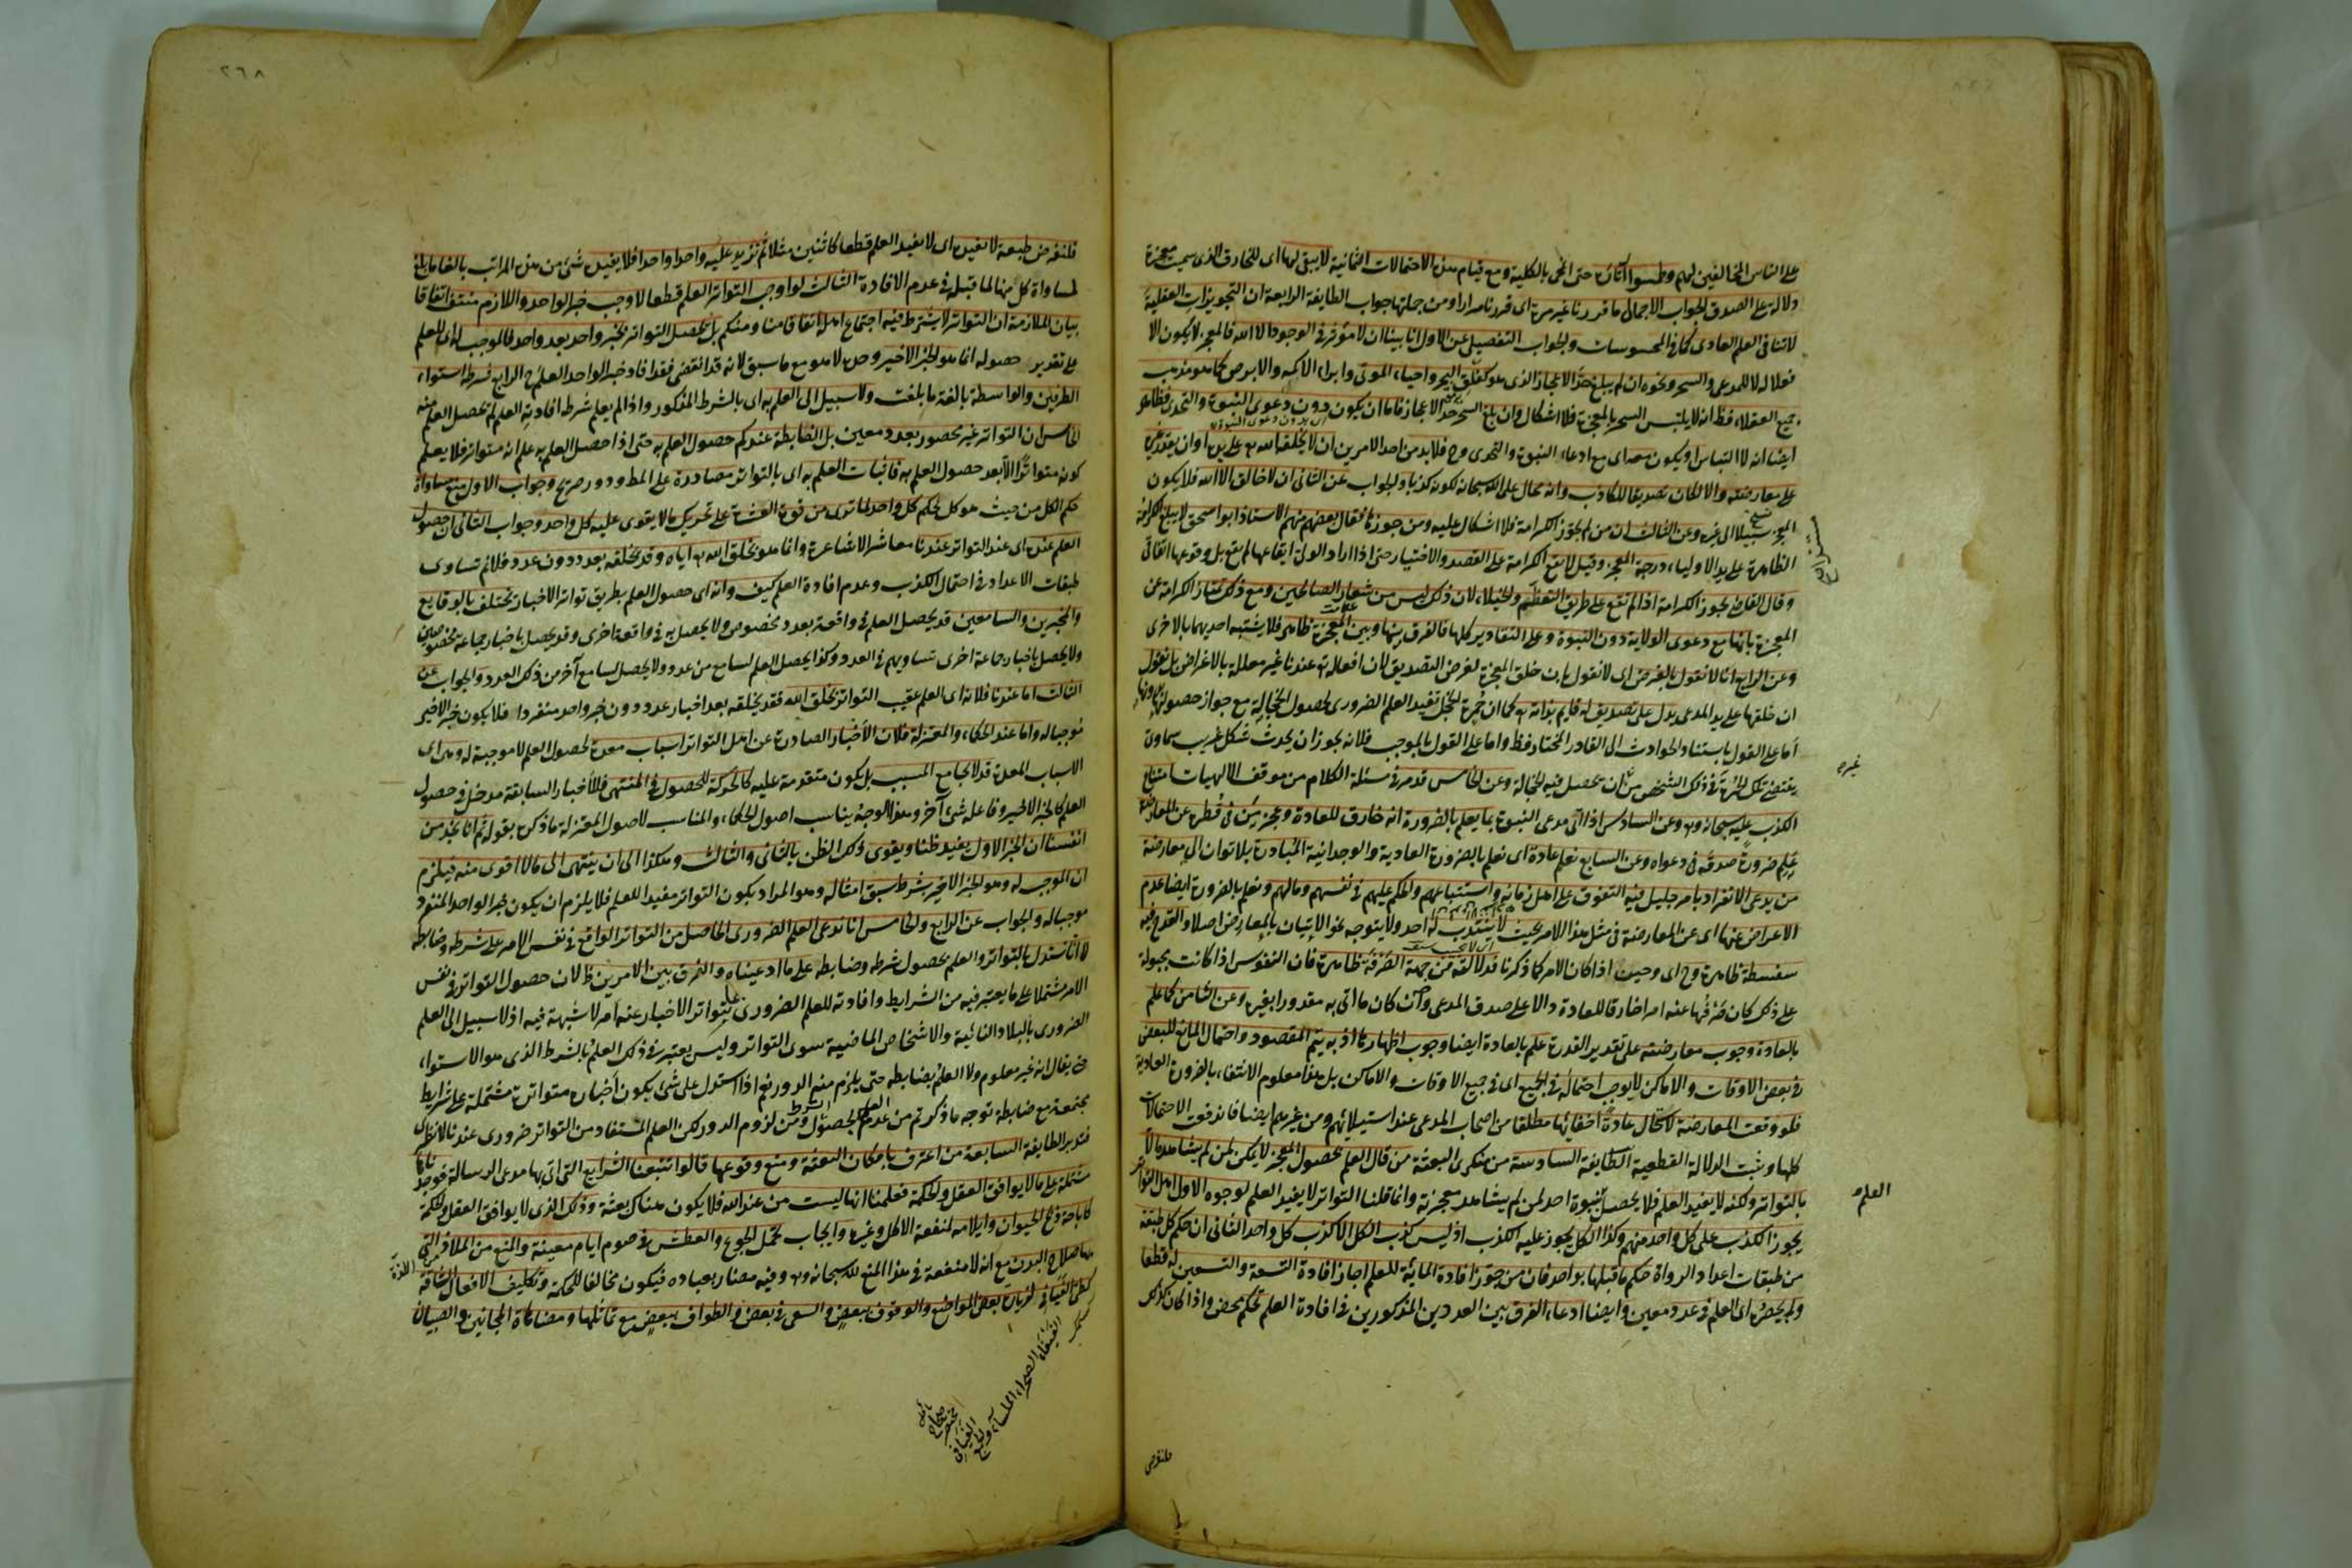 على الناس المخالفين لهم وطمسوا آثاره حتى انمحى بالكلية ومع قيام هذه الاحتمالات الثمانية لا يبقى لها اى للخارق الذى سميت معجزة
دلالة على الصدق الجواب الاجمالى ما قررنا غير مرة اى قررناه مرارا ومن جملتها جواب الطايفة الرابعة ان التجويزات العقلية
لا تنافى العلم العادى كما فى المحسوسات والجواب التفصيلى عن الاول انا بينا ان لا مؤثر فى الوجود الا الله فالمعجز لا يكون الا
فعلا له لا للمدعى والسحر ونحوه ان لم يبلغ حد الاعجاز الذى هو كفلق البحر واحياء الموتى وابراء الاكمه والابرص كما هو مذهب
جميع العقلاء فظ انه لا يلتبس السحر بالمعجزة فلا اشكال وان بلغ السحر حد الاعجاز فاما ان يكون دون دعوى النبوة والتحدى فظاهر
ايضا انه لا التباس او يكون معه اى مع ادعاء النبوة والتحدى وح فلا بد من احد الامرين ان لا يخلقه الله على يده او ان يقدر غيره
على معارضته والا لكان تصديقا للكاذب وانه محال على الله سبحانه لكونه كذبا والجواب عن الثانى ان لا خالق الا الله فلا يكون
المعجز سبيلا الى غيره وعن الثالث ان من لم يجوز الكرامة فلا اشكال عليه ومن جوزها فقال بعضهم منهم الاستاذ ابو اسحق لا يبلغ الكرامة
الظاهرة على يد الاولياء درجة المعجز وقيل لا تقع الكرامة على القصد والاختيار حتى اذا اراد الولى ايقاعها لم تقع بل وقوعها اتفاقى
وقال القاضى يجوز الكرامة اذا لم تقع على طريق التعظم والخيلاء لان ذلك ليس من شعار الصالحين ومع ذلك تمتاز الكرامة عن
المعجزة بانها مع دعوى الولاية دون النبوة وعلى التقادير كلها فالفرق بينها وبين المعجزة ظاهر فلا يشتبه احديهما بالاخرى
وعن الرابع انا لا نقول بالغرض اى لا نقول بان خلق المعجزة لغرض التصديق لان افعاله عندنا غير معللة بالاغراض بل نقول
ان خلقها على يد المدعى يدل على تصديق له قايم بذاته كما ان حمرة الخجل تفيد العلم الضرورى لحصول الخجالة مع جواز حصولها بدونها
اما على القول باستناد الحوادث الى القادر المختار فظ واما على القول بالموجب فلانه يجوز ان يحدث شكل غريب سماوى
يقتضى تلك الحمرة فى ذلك الشخص من ان تحصل فيه الخجالة وعن الخامس قد مر فى مسئلة الكلام من موقف الالهيات امتناع
الكذب عليه سبحانه وعن السادس اذا اتى مدعى النبوة بما يعلم بالضرورة انه خارق للعادة وعجز من فى قطره عن المعارضة
علم ضرورة صدقه فى دعواه وعن السابع نعلم عادة اى نعلم بالضرورة العادية والوجدانية المبادرة بلا توان الى معارضة
من يدعى الانفراد بامر جليل فيه التفوق على اهل زمانه واستتباعهم والحكم عليهم فى نفسهم ومالهم ونعلم بالضرورة ايضا عدم
الاعراض عنها اى عن المعارضة فى مثل هذا الامر بحيث لا ينتدب له احد ولا يتوجه نحو الاتيان بالمعارض اصلا والقدح فيه
سفسطة ظاهرة وح اى وحين اذ كان الامر كما ذكرنا فدلالته من جهة الصرفة ظاهرة فان النفوس اذا كانت مجبولة
على ذلك كان صرفها عنه امرا خارقا للعادة دالا على صدق المدعى وان كان ما اتى به مقدورا لغيره وعن الثامن كما علم
بالعادة وجوب معارضته على تقدير القدرة علم بالعادة ايضا وجوب اظهارها اذ به يتم المقصود واحتمال المانع للبعض
فى بعض الاوقات والاماكن لا يوجب احتماله فى الجميع اى فى جميع الاوقات والاماكن بل هذا معلوم الانتفاء بالضرورة العادية
فلو وقعت المعارضة لاستحال عادة اخفائها مطلقا من اصحاب المدعى عند استيلائهم ومن غيرهم ايضا فاندفعت الاحتمالات
كلها وثبت الدلالة القطعية الطايفة السادسة من منكرى البعثة من قال العلم بحصول المعجز لا يمكن لمن لم يشاهده الا
بالتواتر ولكنه لا يفيد العلم فلا يحصل بنبوة احد لمن لم يشاهد معجزته وانما قلنا التواتر لا يفيد العلم لوجوه الاول اهل التواتر
يجوز الكذب على كل واحد منهم وكذا الكل يجوز عليه الكذب اذ ليس كذب الكل الا كذب كل واحد الثانى ان حكم كل طبقة
من طبقات اعداد الرواة حكم ما قبلها بواحد فان من جوز افادة المائة للعلم اجاز افادة التسعة والتسعين له قطعا
ولم يحصر اى العلم فى عدد معين وايضا ادعاء الفرق بين العددين المذكورين فى افادة العلم تحكم محض واذا كان كذلك
غيره
العلم
فلنفرض
٢٦٨
فلنفرض طبقة لا تفيده اى لا تفيد العلم قطعا كاثنين مثلا ثم نزيد عليه واحدا واحدا فلا يفيده شىء من هذه المراتب بالغا ما بلغ
لمساواة كل منها لما قبله فى عدم الافادة الثالث لو اوجب التواتر العلم قطعا لاوجب خبر الواحد واللازم منتف اتفاقا
بيان الملازمة ان التواتر لا يشترط فيه اجتماع اهله اتفاقا منا ومنكم بل يحصل التواتر بخبر واحد بعد واحد فالموجب له اى للعلم
على تقدير حصوله انما هو الخبر الاخير وحده لا هو مع ما سبق لانه قد انقضى فقد افاد خبر الواحد العلم ح الرابع شرطه استواء
الطرفين والواسطة بالغة ما بلغت ولا سبيل الى العلم به اى بالشرط المذكور واذا لم يعلم شرط افادته العلم لم يحصل العلم منه
الخامس ان التواتر غير محصور بعدد معين بل الضابطة عندكم حصول العلم به حتى اذا حصل العلم به علم انه متواتر فلا يعلم
كونه متواترا الا بعد حصول العلم به فاثبات العلم به اى بالتواتر مصادرة على المط ودور صريح وجواب الاول منع مساواة
حكم الكل من حيث هو كل لحكم كل واحد لما ترى من قوة العشرة على تحريك ما لا يقوى عليه كل واحد وجواب الثانى ان حصول
العلم عنده اى عند التواتر عندنا معاشر الاشاعرة وانما هو بخلق الله اياه وقد يخلقه بعدد دون عدد فلا نم تساوى
طبقات الاعداد فى احتمال الكذب وعدم افادة العلم كيف وانه اى حصول العلم بطريق تواتر الاخبار يختلف بالوقايع
والمخبرين والسامعين قد يحصل العلم فى واقعة بعدد مخصوص ولا يحصل به فى واقعة اخرى وقد يحصل باخبار جماعة مخصوصين
ولا يحصل باخبار جماعة اخرى تساويهم فى العدد وكذا يحصل العلم لسامع من عدد ولا يحصل لسامع آخر من ذلك العدد والجواب عن
الثالث اما عندنا فلانه اى العلم عقيب التواتر بخلق الله فقد يخلقه بعد اخبار عدد دون خبر واحد منفردا فلا يكون خبر الاخير
موجبا له واما عند الحكماء والمعتزلة فلان الاخبار الصادرة عن اهل التواتر اسباب معدة لحصول العلم لا موجبة له وهى اى
الاسباب المعدة قد لا تجامع المسبب بل تكون متقدمة عليه كالحركة للحصول فى المنتهى فللاخبار السابقة مدخل فى حصول
العلم كالخبر الاخير وفاعله شىء آخر وهذا الوجه يناسب اصول الحكماء والمناسب لاصول المعتزلة ما ذكره بقوله ثم انا نجد من
انفسنا ان الخبر الاول يفيد ظنا ويقوى ذلك الظن بالثانى والثالث وهكذا الى ان ينتهى الى ما لا اقوى منه فيلزم
ان الموجب له وهو الخبر الاخير بشرط سبق امثاله وهو المراد بكون التواتر مفيدا للعلم فلا يلزم ان يكون خبر الواحد المنفرد
موجبا له والجواب عن الرابع والخامس انا ندعى العلم الضرورى الحاصل من التواتر الواقع فى نفس الامر على شرطه وضابطه
لا انا نستدل بالتواتر والعلم بحصول شرطه وضابطه على ما ادعيناه والفرق بين الامرين ظ لان حصول التواتر فى نفس
الامر مشتملا على ما يعتبر فيه من الشرايط وافادته للعلم الضرورى بتواتر الاخبار عنه امر لا شبهة فيه اذ لا سبيل الى العلم
الضرورى بالبلاد النائية والاشخاص الماضية سوى التواتر وليس يعتبر فى ذلك العلم بالشرط الذى هو الاستواء
حتى يقال انه غير معلوم ولا العلم بضابطه حتى يلزم منه الدور نعم اذا استدل على شىء بكون اخباره متواترة مشتملة على شرايط
مجتمعة مع ضابطة توجه ما ذكرتم من عدم العلم بحصول الشرط ومن لزوم الدور لكن العلم المستفاد من التواتر ضرورى عندنا لا نظرى
فتدبر الطايفة السابعة من اعترف بامكان البعثة ومنع وقوعها قالوا تتبعنا الشرايع التى اتى بها مدعى الرسالة فوجدناها
مشتملة على ما لا يوافق العقل والحكمة فعلمنا انها ليست من عند الله فلا يكون هناك بعثة وذلك الذى لا يوافق العقل والحكمة
كاباحة ذبح الحيوان وايلامه لمنفعة الاكل وغيره وايجاب تحمل الجوع والعطش فى صوم ايام معينة والمنع من الملاذ التى
بها صلاح البدن مع انه لا منفعة فى هذا المنع لله سبحانه وفيه مضار بعباده فيكون مخالفا للحكمة وتكليف الافعال الشاقة
كطى الفيافى لزيارة بعض المواضع والوقوف ببعض والسعى فى بعض والطواف ببعض مع تماثلها ومضاهاة المجانين والصبيان
الفيفاء الصحراء الملساء والجمع
الفيافى